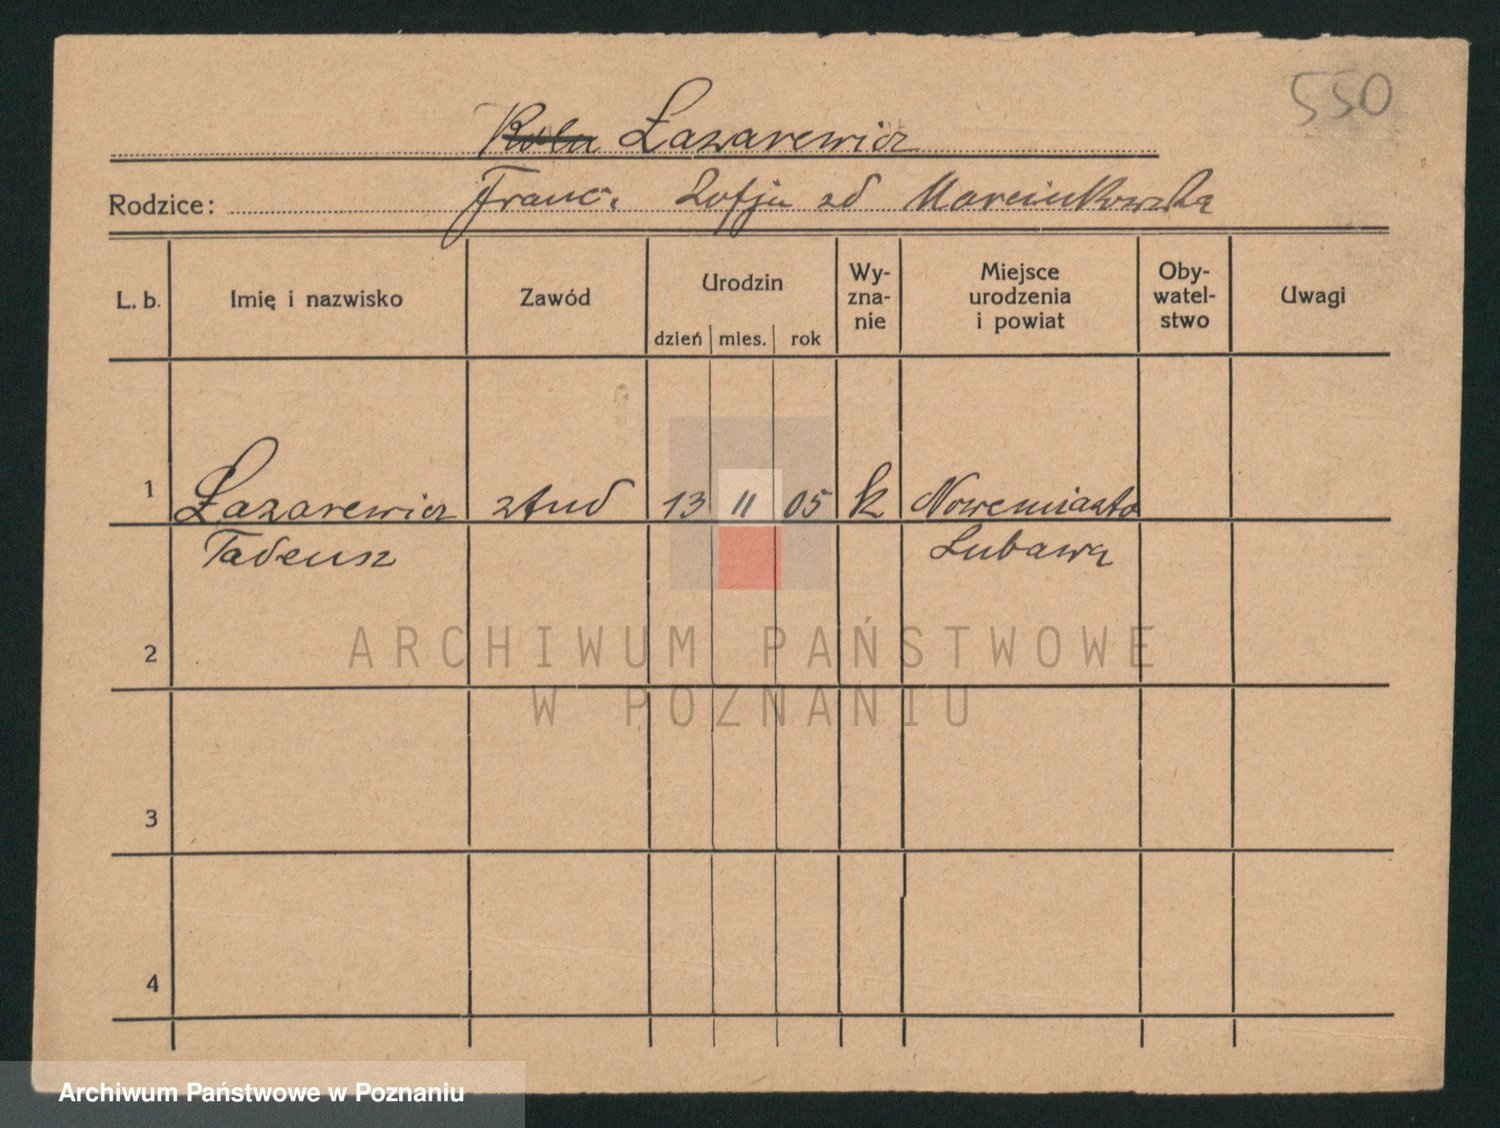 550
Rola Łazarewicz
Rodzice: Franc. Zofja zd Marcinkowska
L. b. Imię i nazwisko Zawód Urodzin dzień mies. rok Wy-zna-nie Miejsce urodzenia i powiat Oby-watel-stwo Uwagi
1 Łazarewicz stud 13 11 05 k Nowemiasto
Tadeusz Lubawa
2
3
4
ARCHIWUM PAŃSTWOWE
W POZNANIU
Archiwum Państwowe w Poznaniu